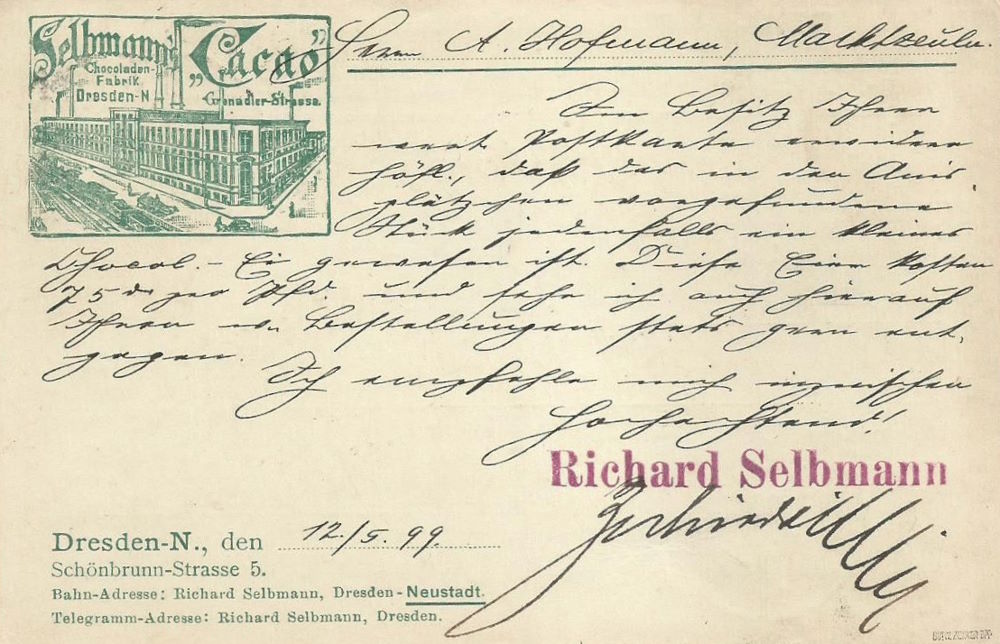 Selbmann's „Cacao“
Chocoladen-
Fabrik
Dresden-N
Grenadier-Strasse.
Herrn A. Hofmann, Marktzeuln.
Im Besitz Ihrer
wert. Postkarte erwidere
höfl., daß das in den Anis
plätzchen vorgefundene
Stück jedenfalls ein kleines
Chocol.- Ei gewesen ist. Diese Eier kosten
75 d. per Pfd. und sehe ich auch hierauf
Ihren w. Bestellungen stets gern ent,
gegen.
Ich empfehle mich inzwischen
Hochachtend!
Richard Selbmann
Dresden-N., den 12/5. 99.
Schönbrunn-Strasse 5.
Bahn-Adresse: Richard Selbmann, Dresden-Neustadt.
Telegramm-Adresse: Richard Selbmann, Dresden.